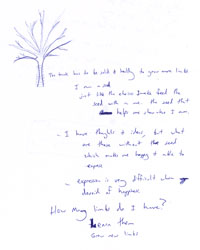 The trunk has to be solid & healthy to grow more limbs
I am a seed
just like the choices I make feed the
seed with in me. the seed that
helps me
- I have thoughts & ideas, but what
are those without the seed
which makes me happy & able to
express
- expression is very difficult when
devoid of happiness
How Many limbs do I have?
Learn them
Grow new limbs